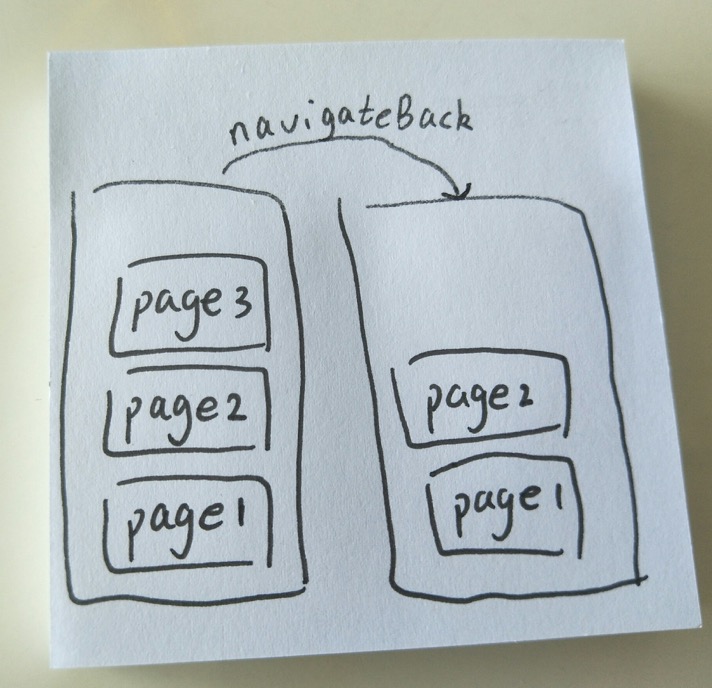 navigateBack
page3
page2
page1
page2
page1